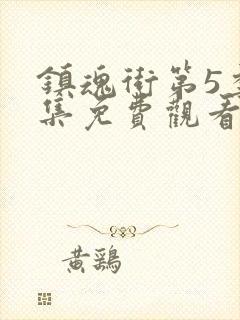 鎮魂街第5季
集免費觀看
黃鷄